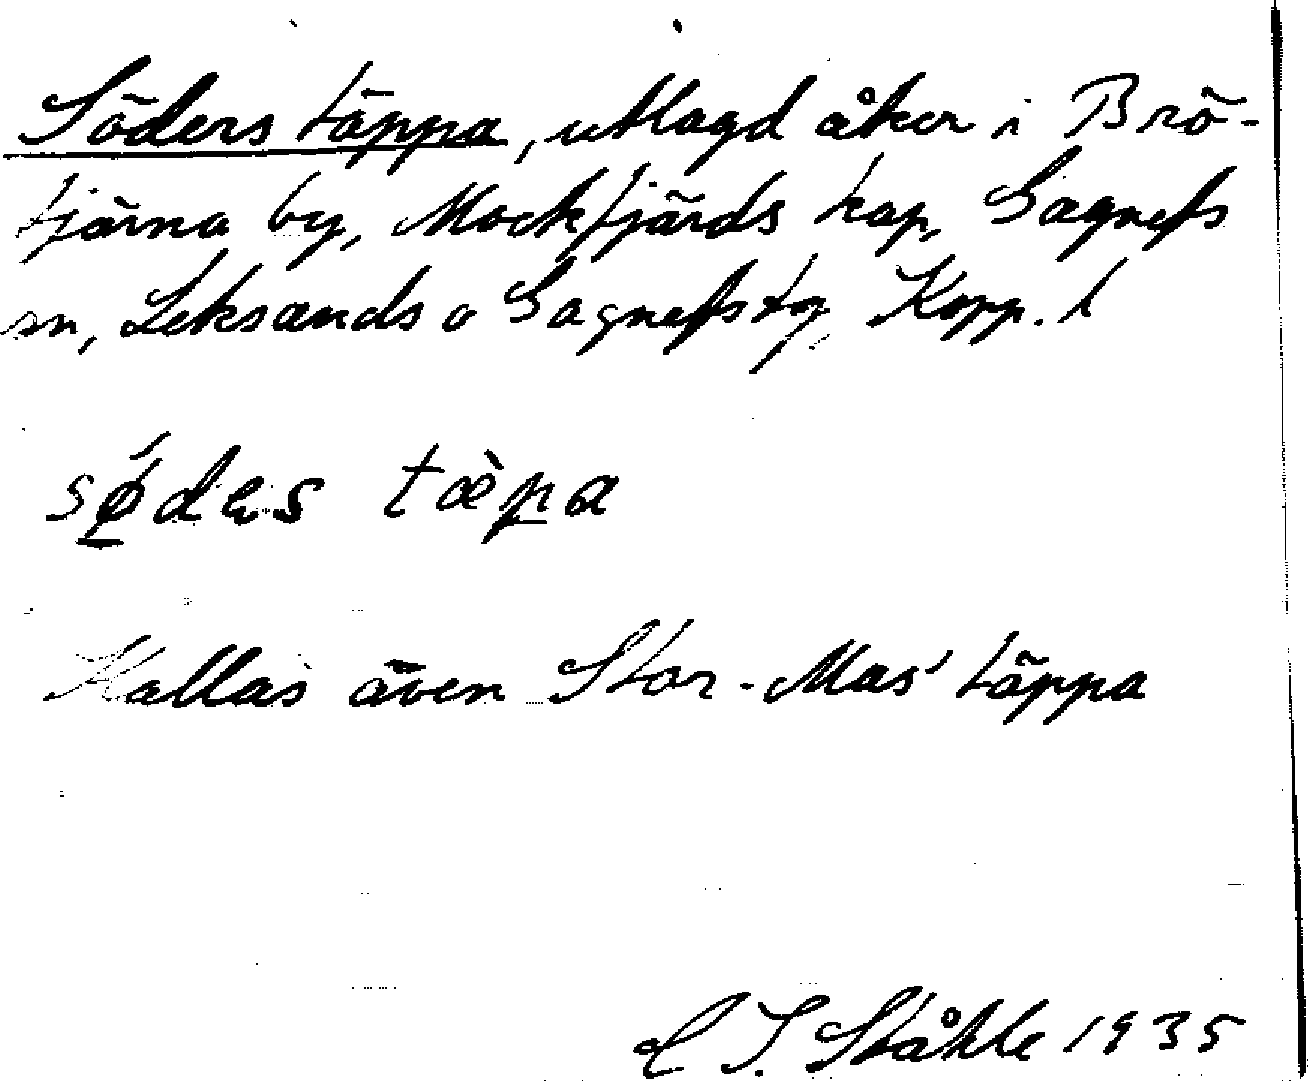 Söders täppa, utlagd åker i Brö-
tjärna by, Mockfjärds kap, Gagnefs
sn, Leksands o Gagnefs tg, Kopp. l
sǿdes tæ̀pa
Kallas även Stor-Mas' täppa
C I. Ståhle 1935